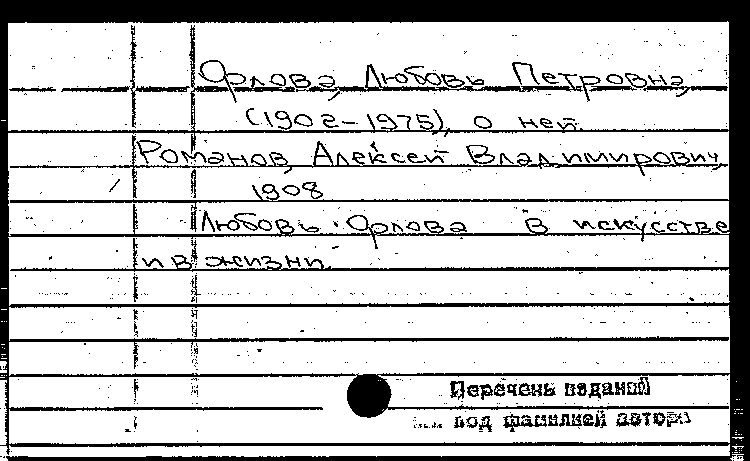 Орлова, Любовь Петровна,
(1902-1975), о ней.
Романов, Алексей Владимирович,
1908
Любовь Орлова в искусстве
и в жизни.
Перечень изданий
под фамилией автора